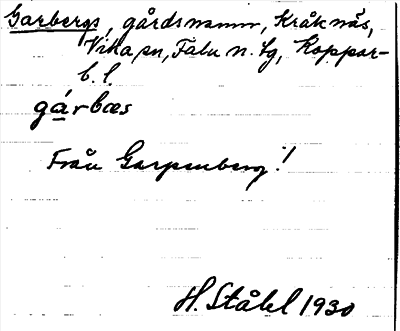 Garbergs, gårdsnamn, Kråknäs,
Vika sn, Falu n. tg, Koppar-
b. l.
gárbæs
Från Garpenberg!
H. Ståhl 1930